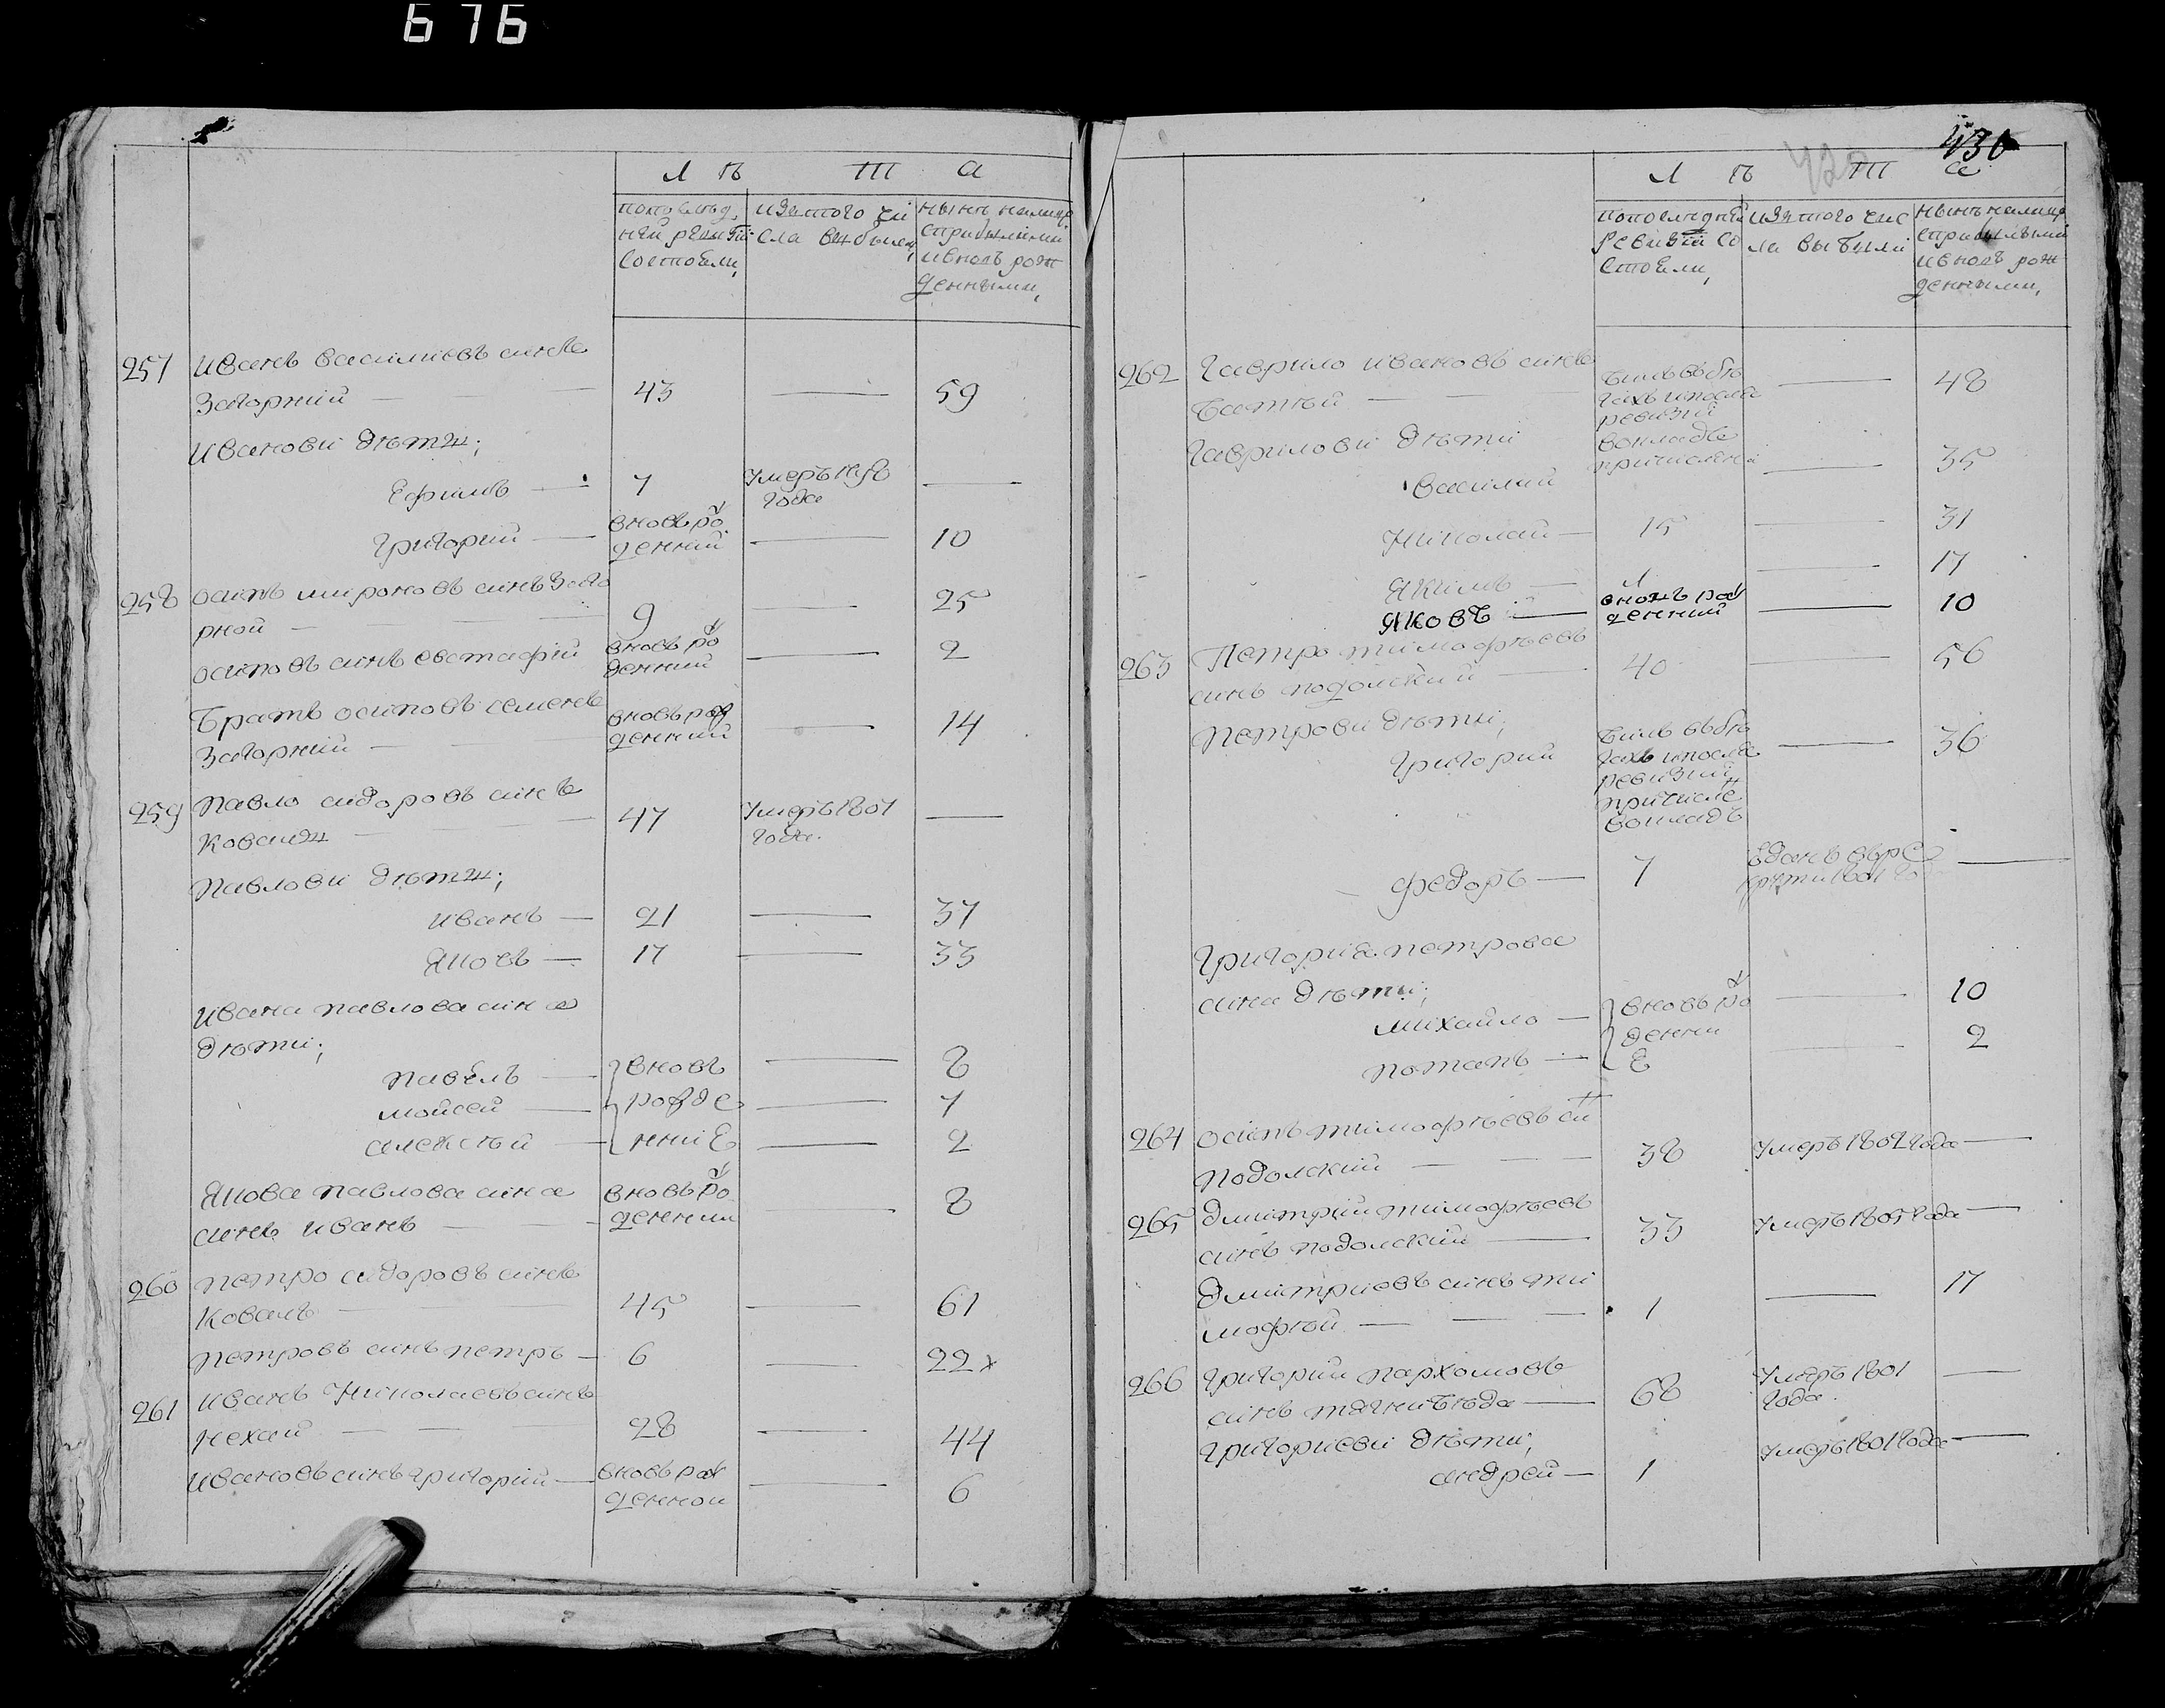 676
Л Ѣ Т А
попослѣд
ней ревизіи
состояли,
изтого чи
сла выбыли,
нынѣ налицо
сприбылыми
ивновь рож
денными,
257 Иванъ василиевъ синъ
Загорний — 43 — 59
Иванови дѣти;
Ефимъ — 7 умеръ 1798 —
года
Григорий — вновь ро — 10
денний
258 осипъ мироновъ синъ Заго
рной — 9 — 25
осиповъ синъ евстафий вновь ро — 2
денний
Братъ осиповъ семенъ вновь рож — 14
Загорний — денний
259 Павло сидоровъ синъ
Коваль — 47 умеръ 1807 —
года.
Павлови дѣти;
иванъ — 21 — 37
Яковъ — 17 — 33
Ивана павлова сина
дѣти;
павелъ — вновь — 8
мойсей — рожде — 7
алексѣй — нниЕ — 2
Якова павлова сина вновь ро — 8
синъ иванъ — денний
260 петро сидоровъ синъ
Коваль — 45 — 61
петровъ синъ петръ — 6 — 22 х
261 Иванъ Николаевъ синъ
нехай — 28 — 44
Ивановъ синъ григорий — вновь рож — 6
денной
430
Л Ѣ Т А
попоследней
ревизіи со
стояли,
изтого чис
ла выбыли
нынѣ налицо
сприбылыми
ивновь рож
денными,
262 Гаврило ивановъ синъ
Батѣй — билъ вбѣ — 48
гахъ ипосла
ревизий
Гаврилови дѣти вокладъ
причислени — 35
василий
Николай — 15 — 31
Якимъ — 1 — 17
Яковъ — вновь рож — 10
денний
263 Петро тимофѣевъ
синъ подолский — 40 — 56
Петрови дѣти;
григорий билъ вбѣ — 36
гахъ ипосла
ревизий
причисле
вокладъ
федоръ — 7 Вданъ вре —
крути 1801 го
Григория петрова
сина дѣти;
михайло — вновь ро — 10
денни
потапъ — Е — 2
264 осипъ тимофѣевъ си
Подолский — 38 умеръ 1802 года —
265 Дмитрий тимофѣевъ
синъ подолский — 33 умеръ 1805 года —
Дмитриевъ синъ ти
мофѣй — 1 — 17
266 григорий пархомовъ
синъ тягнибѣда — 68 умеръ 1801 —
года.
григориеви дѣти;
андрей — 1 умеръ 1801 года —